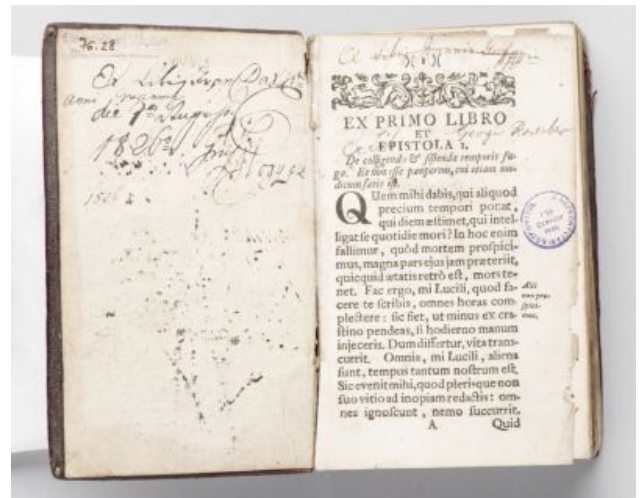 76.28
die Augusti
1826
1826
EX PRIMO LIBRO
ET
EPISTOLA 1.
De colligenda & sistenda temporis fu-
ga. Et non esse pauperem, cui etiam mo-
dicum satis est.
QUem mihi dabis, qui aliquod
precium tempori ponat,
qui diem æstimet, qui intel-
ligat se quotidie mori? In hoc enim
fallimur, quòd mortem prospici-
mus, magna pars ejus jam præteriit,
quicquid ætatis retrò est, mors te-
net. Fac ergo, mi Lucili, quod fa-
cere te scribis, omnes horas com-
plectere: sic fiet, ut minus ex cra-
stino pendeas, si hodierno manum
injeceris. Dum differtur, vita trans-
currit. Omnia, mi Lucili, aliena
sunt, tempus tantum nostrum est.
Sic evenit mihi, quod plerisque non
suo vitio ad inopiam redactis: om-
nes ignoscunt, nemo succurrit.
A Quid